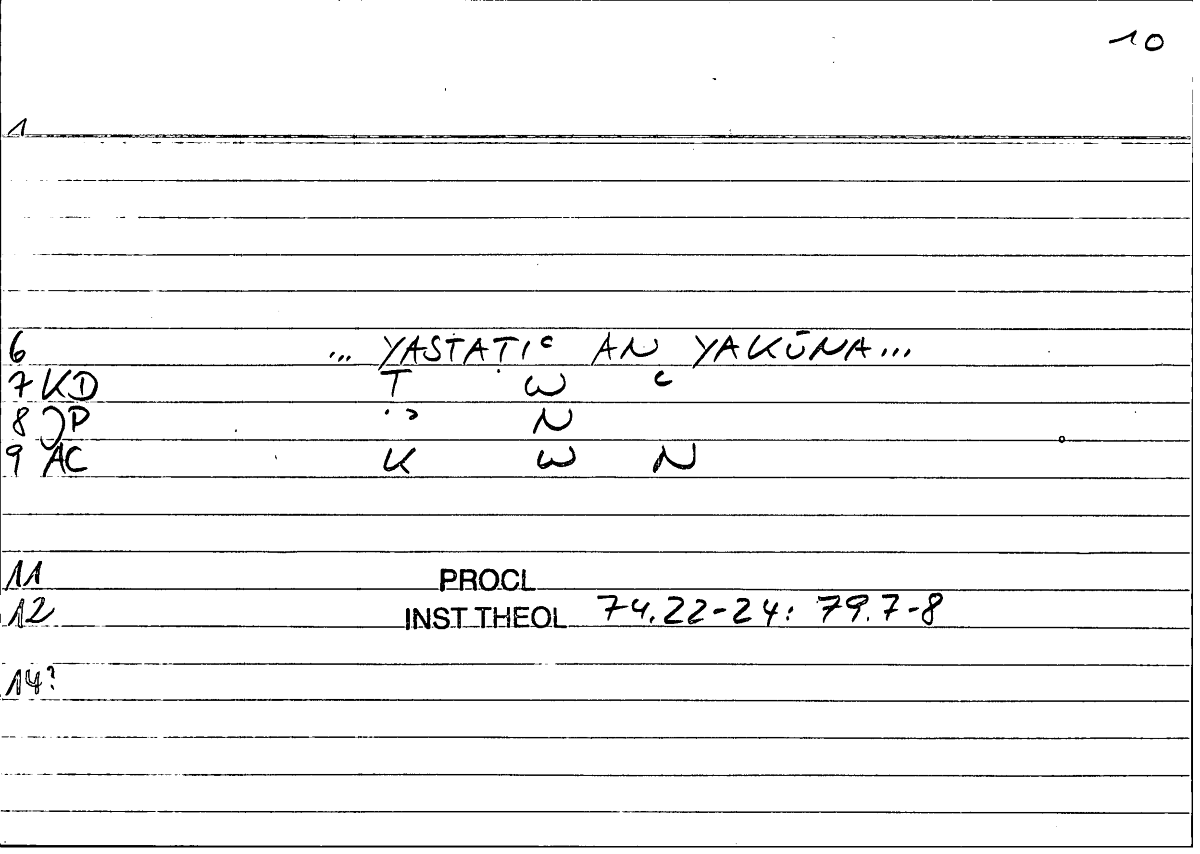 10
1
6 ... YASTAṬIᶜ AN YAKŪNA...
7 KD Ṭ W ᶜ
8 JP ʾ N
9 AC K W N
11 PROCL
12 INST THEOL 74.22-24: 79.7-8
14?